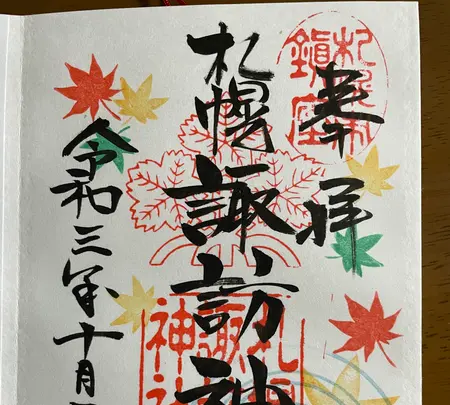 奉拝
札幌諏訪神
令和三年十月
札幌
鎮座